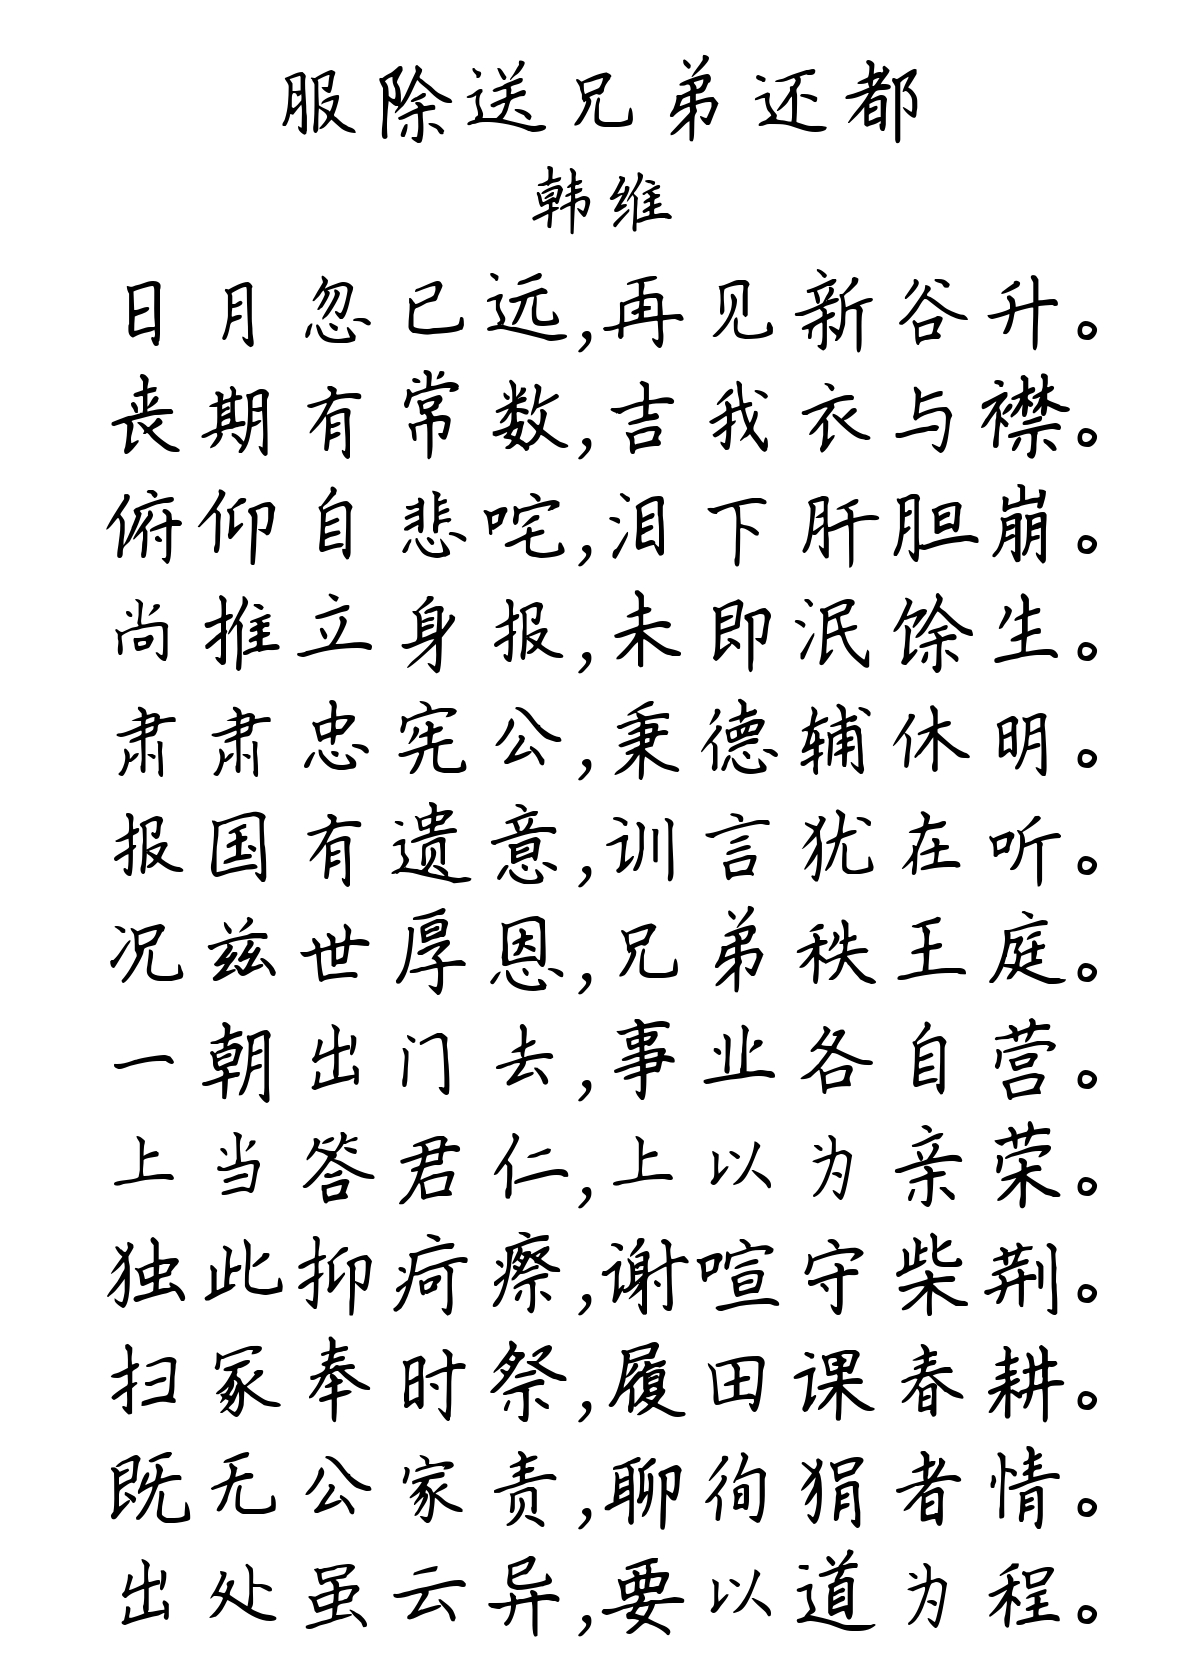 服除送兄弟还都
韩维
日月忽已远,再见新谷升。
丧期有常数,吉我衣与襟。
俯仰自悲咤,泪下肝胆崩。
尚推立身报,未即泯馀生。
肃肃忠宪公,秉德辅休明。
报国有遗意,训言犹在听。
况兹世厚恩,兄弟秩王庭。
一朝出门去,事业各自营。
上当答君仁,上以为亲荣。
独此抑疴瘵,谢喧守柴荆。
扫冢奉时祭,履田课春耕。
既无公家责,聊徇狷者情。
出处虽云异,要以道为程。